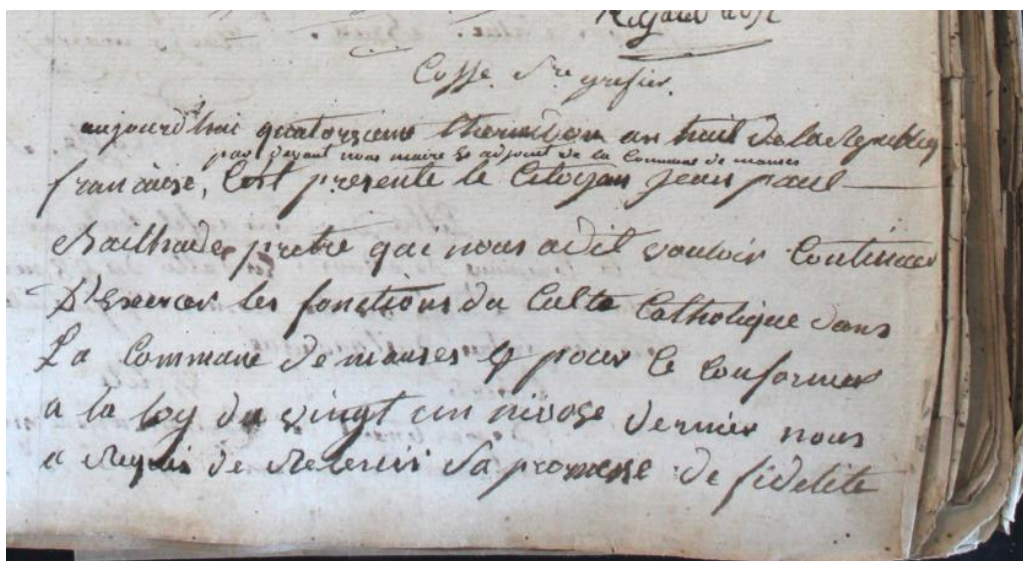 Cosse S.re grefier.
aujourd'hui quatorzieme thermidor an huit de la Republiq
par devant nous maire et adjoint de la Commune de manses
francaise, C'est presenté le Citoyen jean paul
pretre qui nous a dit vouloir Continuer
D'Exercer les fonctions du Culte Catholique dans
La Commune de manses & pour Ce Conformer
a la loy du vingt un nivose dernier nous
a Requis de Recevoir Sa promesse de fidelite